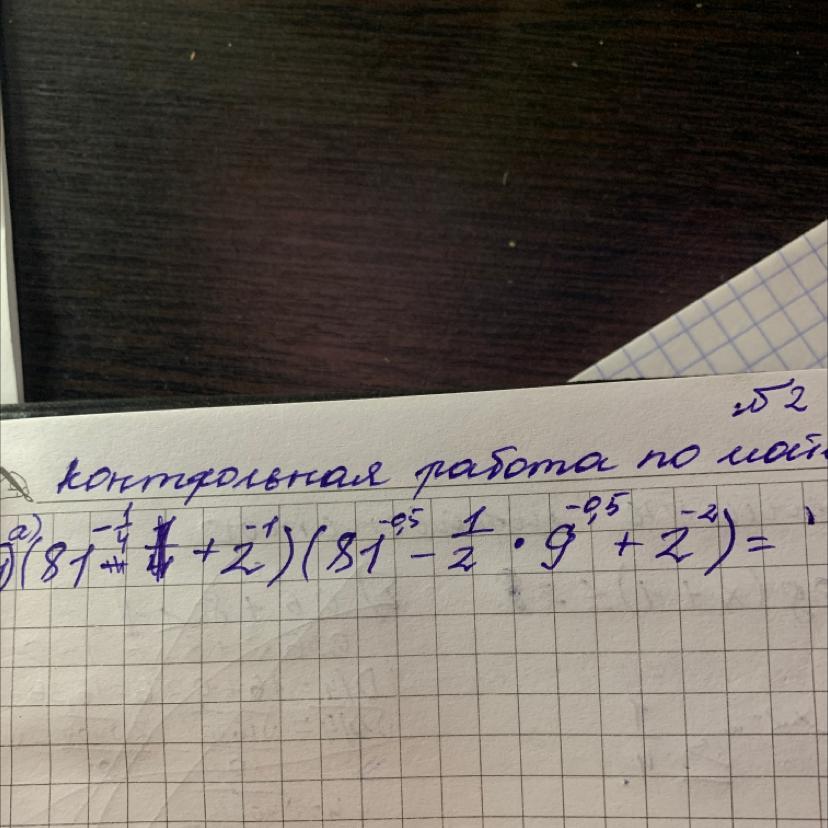 №2
Контрольная работа по мат
1) а) (81^{-1/4} + 2^{-1})(81^{-0,5} - 1/2 · 9^{-0,5} + 2^{-2}) =